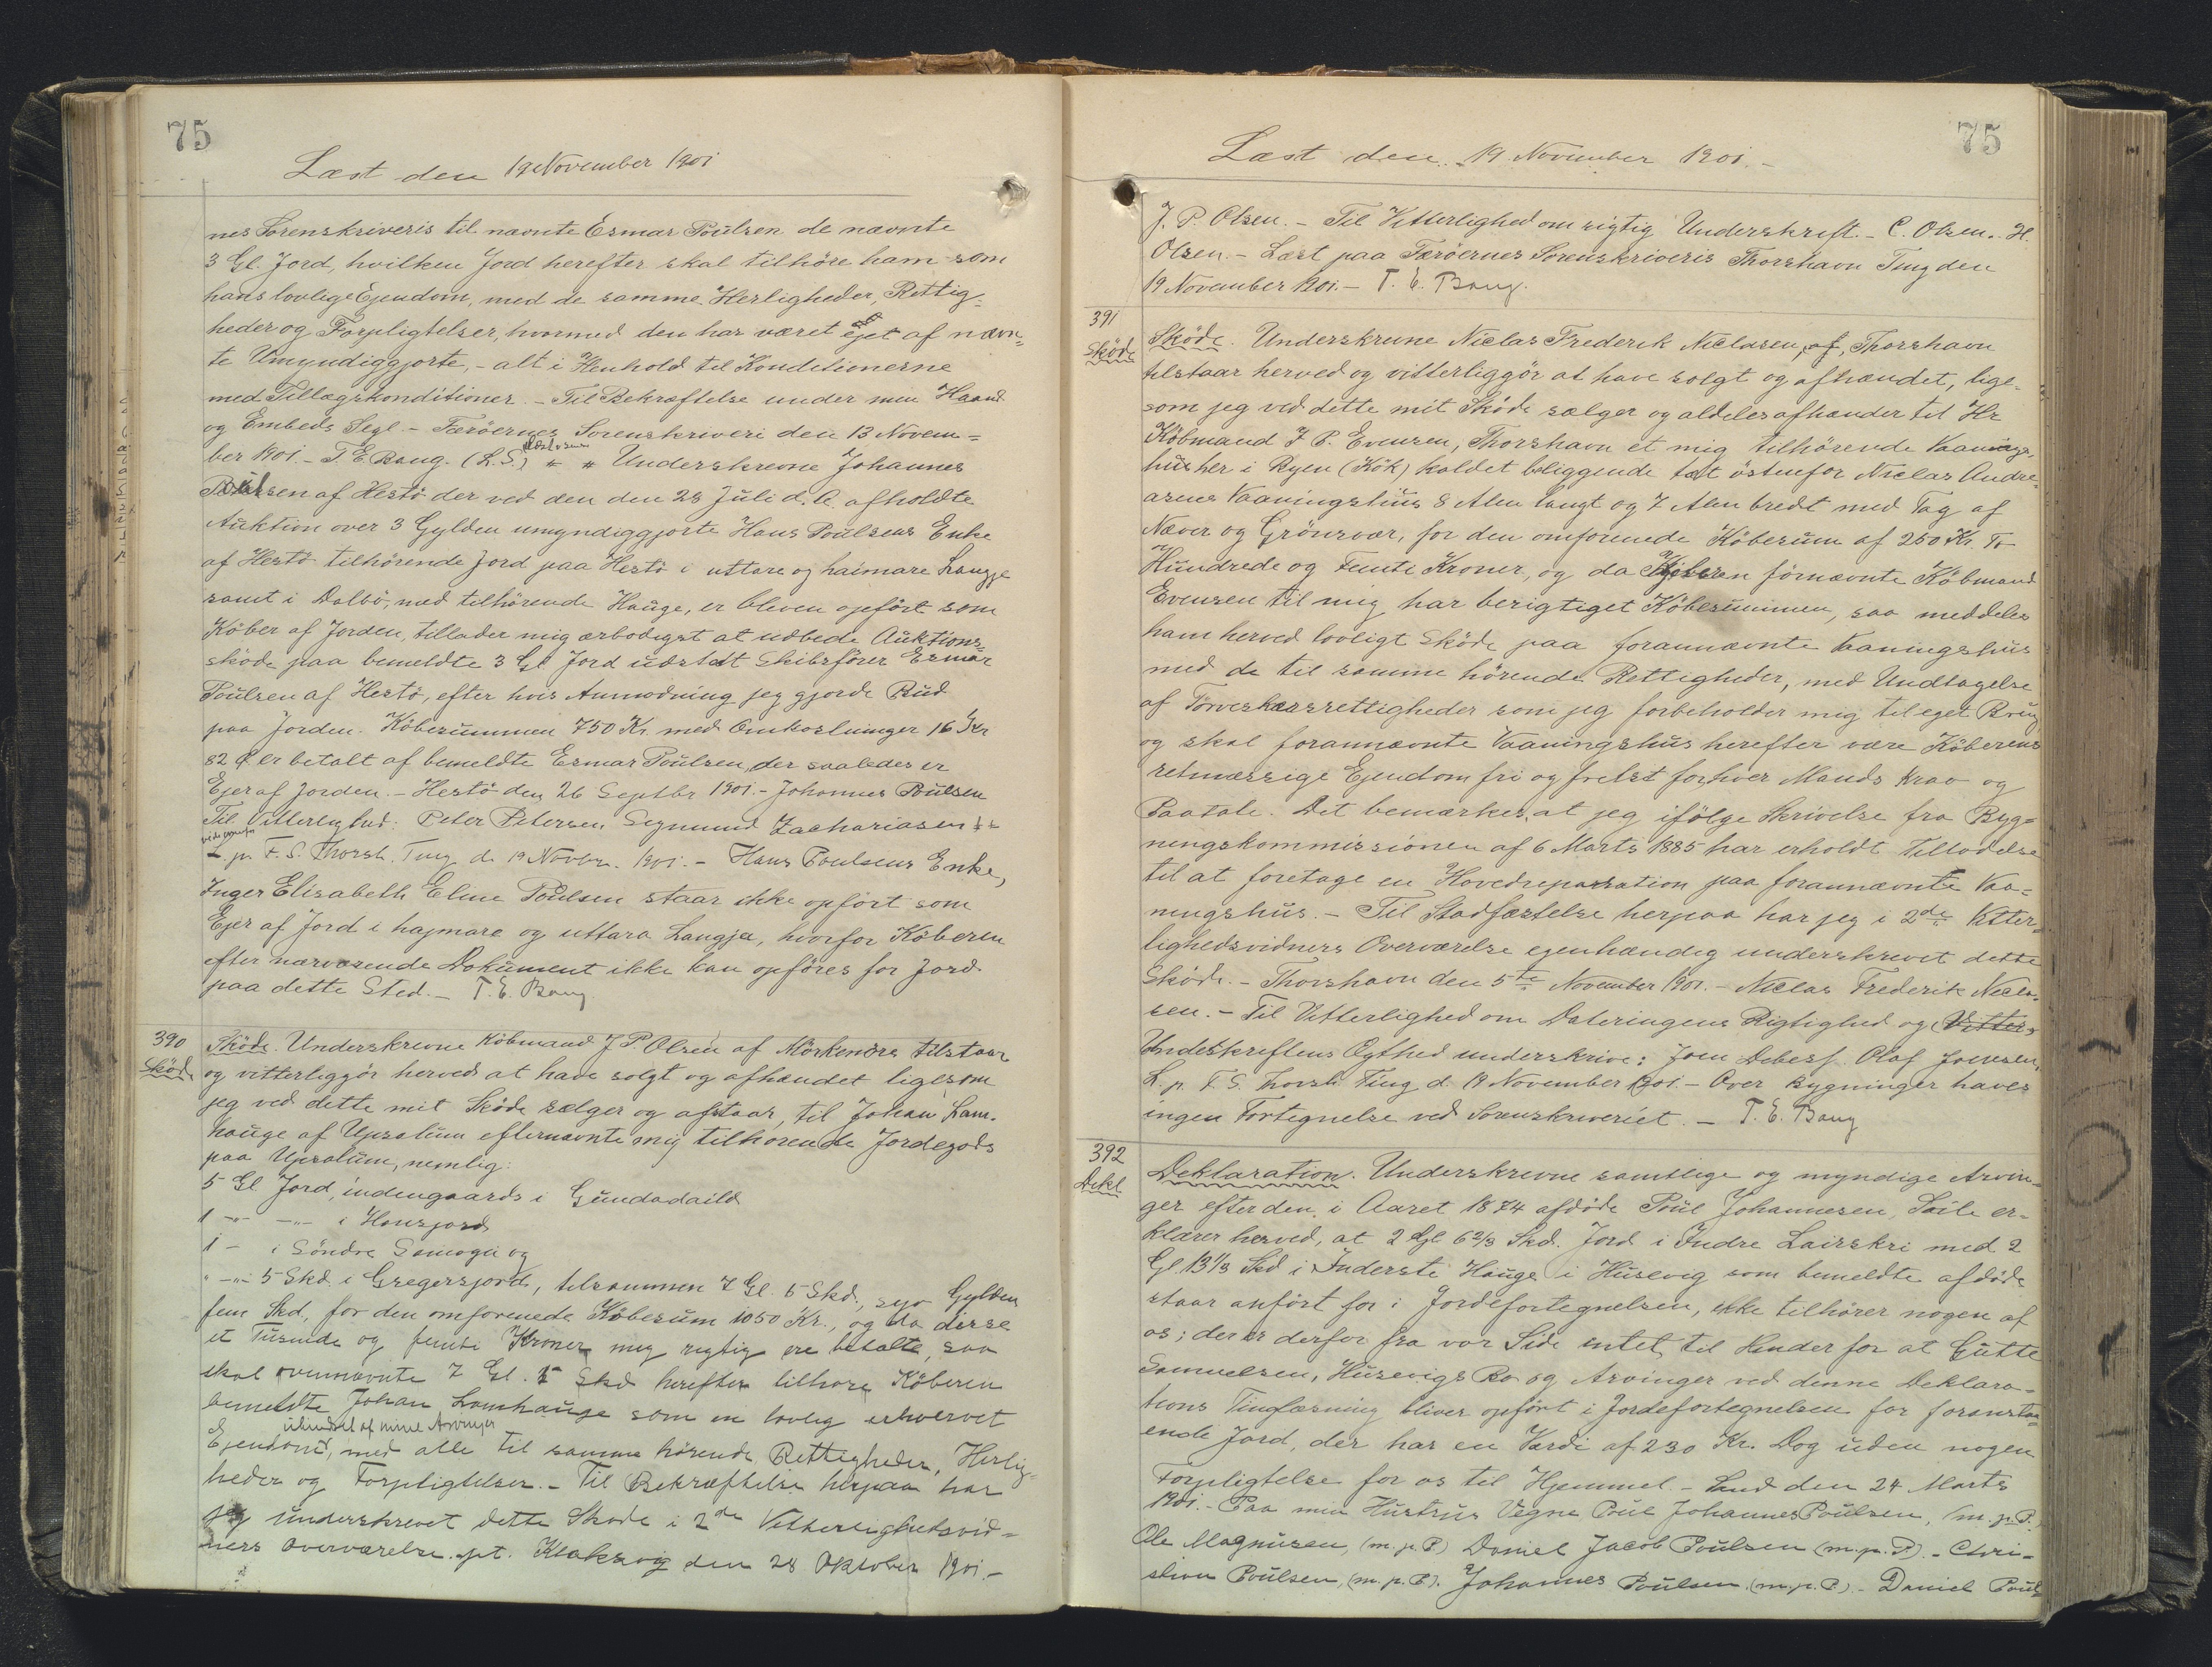 75
Læst den 19 November 1901
nes Sorenskriveris til nævnte Esmar Poulsen de nævnte
3 Gl. Jord, hvilken Jord herefter skal tilhöre ham som
hans lovlige Ejendom, med de samme Herligheder, Rettig-
heder og Forpligtelser, hvormed den har været ejet af nævn-
te Umyndiggjorte, - alt i Henhold til Konditionerne
med Tillægskonditioner. - Til Bekræftelse under min Haand
og Embeds Segl - Færöernes Sorenskriveri den 13 Novem-
ber 1901. - T. E. Bang. (L.S.) Underskrevne Johannes
Poulsen af Hestö der ved den den 28 Juli d. A. afholdte
Auktion over 3 Gylden umyndiggjorte Hans Poulsens Enke
af Hestö tilhörende Jord paa Hestö i uttare og haimare Langje
samt i Dalbö, med tilhörende Hauge, er bleven opfört som
Köber af Jorden, tillader mig ærbödigst at udbede Auktions-
sköde paa bemeldte 3 Gl Jord udstedt Skibsförer Esmar
Poulsen af Hestö, efter hvis Anmodning jeg gjorde Bud
paa Jorden. Köbesummen 750 Kr. med Omkostninger 16 Kr
82 Ø er betalt af bemeldte Esmar Poulsen, der saaledes er
Ejer af Jorden. - Hestö den 26 Septbr 1901. - Johannes Poulsen
Til Vitterlighed: Peter Petersen Sigmund Zachariasen
p. F. S. Thorsh. Ting d. 19 Novbr. 1901. - Hans Poulsens Enke,
Inger Elisabeth Eline Poulsen staar ikke opfört som
Ejer af Jord i hajmare og uttara Langja, hvorfor Köberen
efter nærværende Dokument ikke kan opföres for Jord
paa dette Sted. - T. E. Bang
390
Sköde
Sköde. Underskrevne Köbmand J. P. Olsen af Mörkenöre tilstaar
og vitterliggör herved at have solgt og afhændet ligesom
jeg ved dette mit Sköde sælger og afstaar, til Johan Lam-
hauge af Upsalum efternævnte mig tilhörende Jordegods
paa Upsalum, nemlig:
5 Gl Jord, indengaards i Gundadaild
1 -"- -"- i Honsjord
1 - i Söndre Samogu og
" -"- 5 Skd. i Gregersjord, tilsammen 7 Gl. 5 Skd., syv Gylden
fem Skd., for den omforenede Köbesum 1050 Kr., og da disse
et Tusinde og femti Kroner mig rigtig ere betalte, saa
skal ovennævnte 7 Gl. 5 Skd herefter tilhöre Köberen
bemeldte Johan Lamhauge som en lovlig erhvervet
uhindret af mine Arvinger
Ejendom, med alle til samme hörende Rettigheder, Herlig-
heder og Forpligtelser. - Til Bekræftelse herpaa har
jeg underskrevet dette Sköde i 2de Vitterlighedsvid-
ners Overværelse. pt. Klaksvig den 28 Oktober 1901. -
75
Læst den 19 November 1901. -
J. P. Olsen. - Til Vitterlighed om rigtig Underskrift. - C. Olsen. H.
Olsen. - Læst paa Færöernes Sorenskriveris Thorshavn Ting den
19 November 1901. - T. E. Bang.
391
Sköde
Sköde. Underskrevne Niclas Frederik Niclasen, af, Thorshavn
tilstaar herved og vitterliggör at have solgt og afhændet, lige-
som jeg ved dette mit Sköde sælger og aldeles afhænder til Hr
Köbmand J. P. Evensen, Thorshavn et mig tilhörende Vaanings-
hus her i Byen (Kök) kaldet beliggende tæt östenfor Niclas Andre-
asens Vaaningshus 8 Alen langt og 7 Alen bredt med Tag af
Næver og Grönsvær, for den omforenede Köbesum af 250 Kr. To
Hundrede og Femti Kroner, og da Köberen förnævnte Köbmand
Evensen til mig har berigtiget Köbesummen, saa meddeles
ham herved lovligt Sköde paa forannævnte Vaaningshus
med de til samme hörende Rettigheder, med Undtagelse
af Törveskærsrettigheder som jeg forbeholder mig til eget Brug
og skal forannævnte Vaaningshus herefter være Köberens
retmæssige Ejendom fri og frelst for hver Mands Krav og
Paatale. Det bemærkes, at jeg ifölge Skrivelse fra Byg-
ningskommissionen af 6 Marts 1885 har erholdt Tilladelse
til at foretage en Hovedreparation paa forannævnte Vaa-
ningshus. - Til Stadfæstelse herpaa har jeg i 2de Vitter-
lighedsvidners Overværelse egenhændig underskrevet dette
Sköde. - Thorshavn den 5te November 1901. - Niclas Frederik Nicla-
sen. - Til Vitterlighed om Dateringens Rigtighed og Vitter-
Underskriftens Ægthed underskrive: Joen Debes. Olaf Joensen,
L. p. F. S. Thorsh. Ting d. 19 November 1901. - Over Bygninger haves
ingen Fortegnelse ved Sorenskriveriet. - T. E. Bang
392
Dekl
Deklaration. Underskrevne samtlige og myndige Arvin-
ger efter den i Aaret 1874 afdöde Poul Johannesen, er-
klærer herved, at 2 Gl 6 2/3 Skd. Jord i Indre Lairskri med 2
Gl. 13 1/3 Skd i Inderste Hauge i Husevig som bemeldte afdöde
staar anfört for i Jordefortegnelsen, ikke tilhörer nogen af
os; der er derfor fra vor Side intet til Hinder for at Gutte
Samuelsen, Husevigs Bo og Arvinger ved denne Deklara-
tions Tinglæsning bliver opfört i Jordefortegnelsen for foranstaa-
ende Jord, der har en Værdi af 230 Kr. Dog uden nogen
Forpligtelse for os til Hjemmel. - Sand den 24 Marts
1901. - Paa min Hustrus Vegne Poul Johannes Poulsen, (m. p. P.)
Ole Magnusen, (m. p. P.) Daniel Jacob Poulsen (m. p. P.). - Chri-
stian Poulsen, (m. p. P.). Johannes Poulsen. (m. p. P.) - Daniel Poul